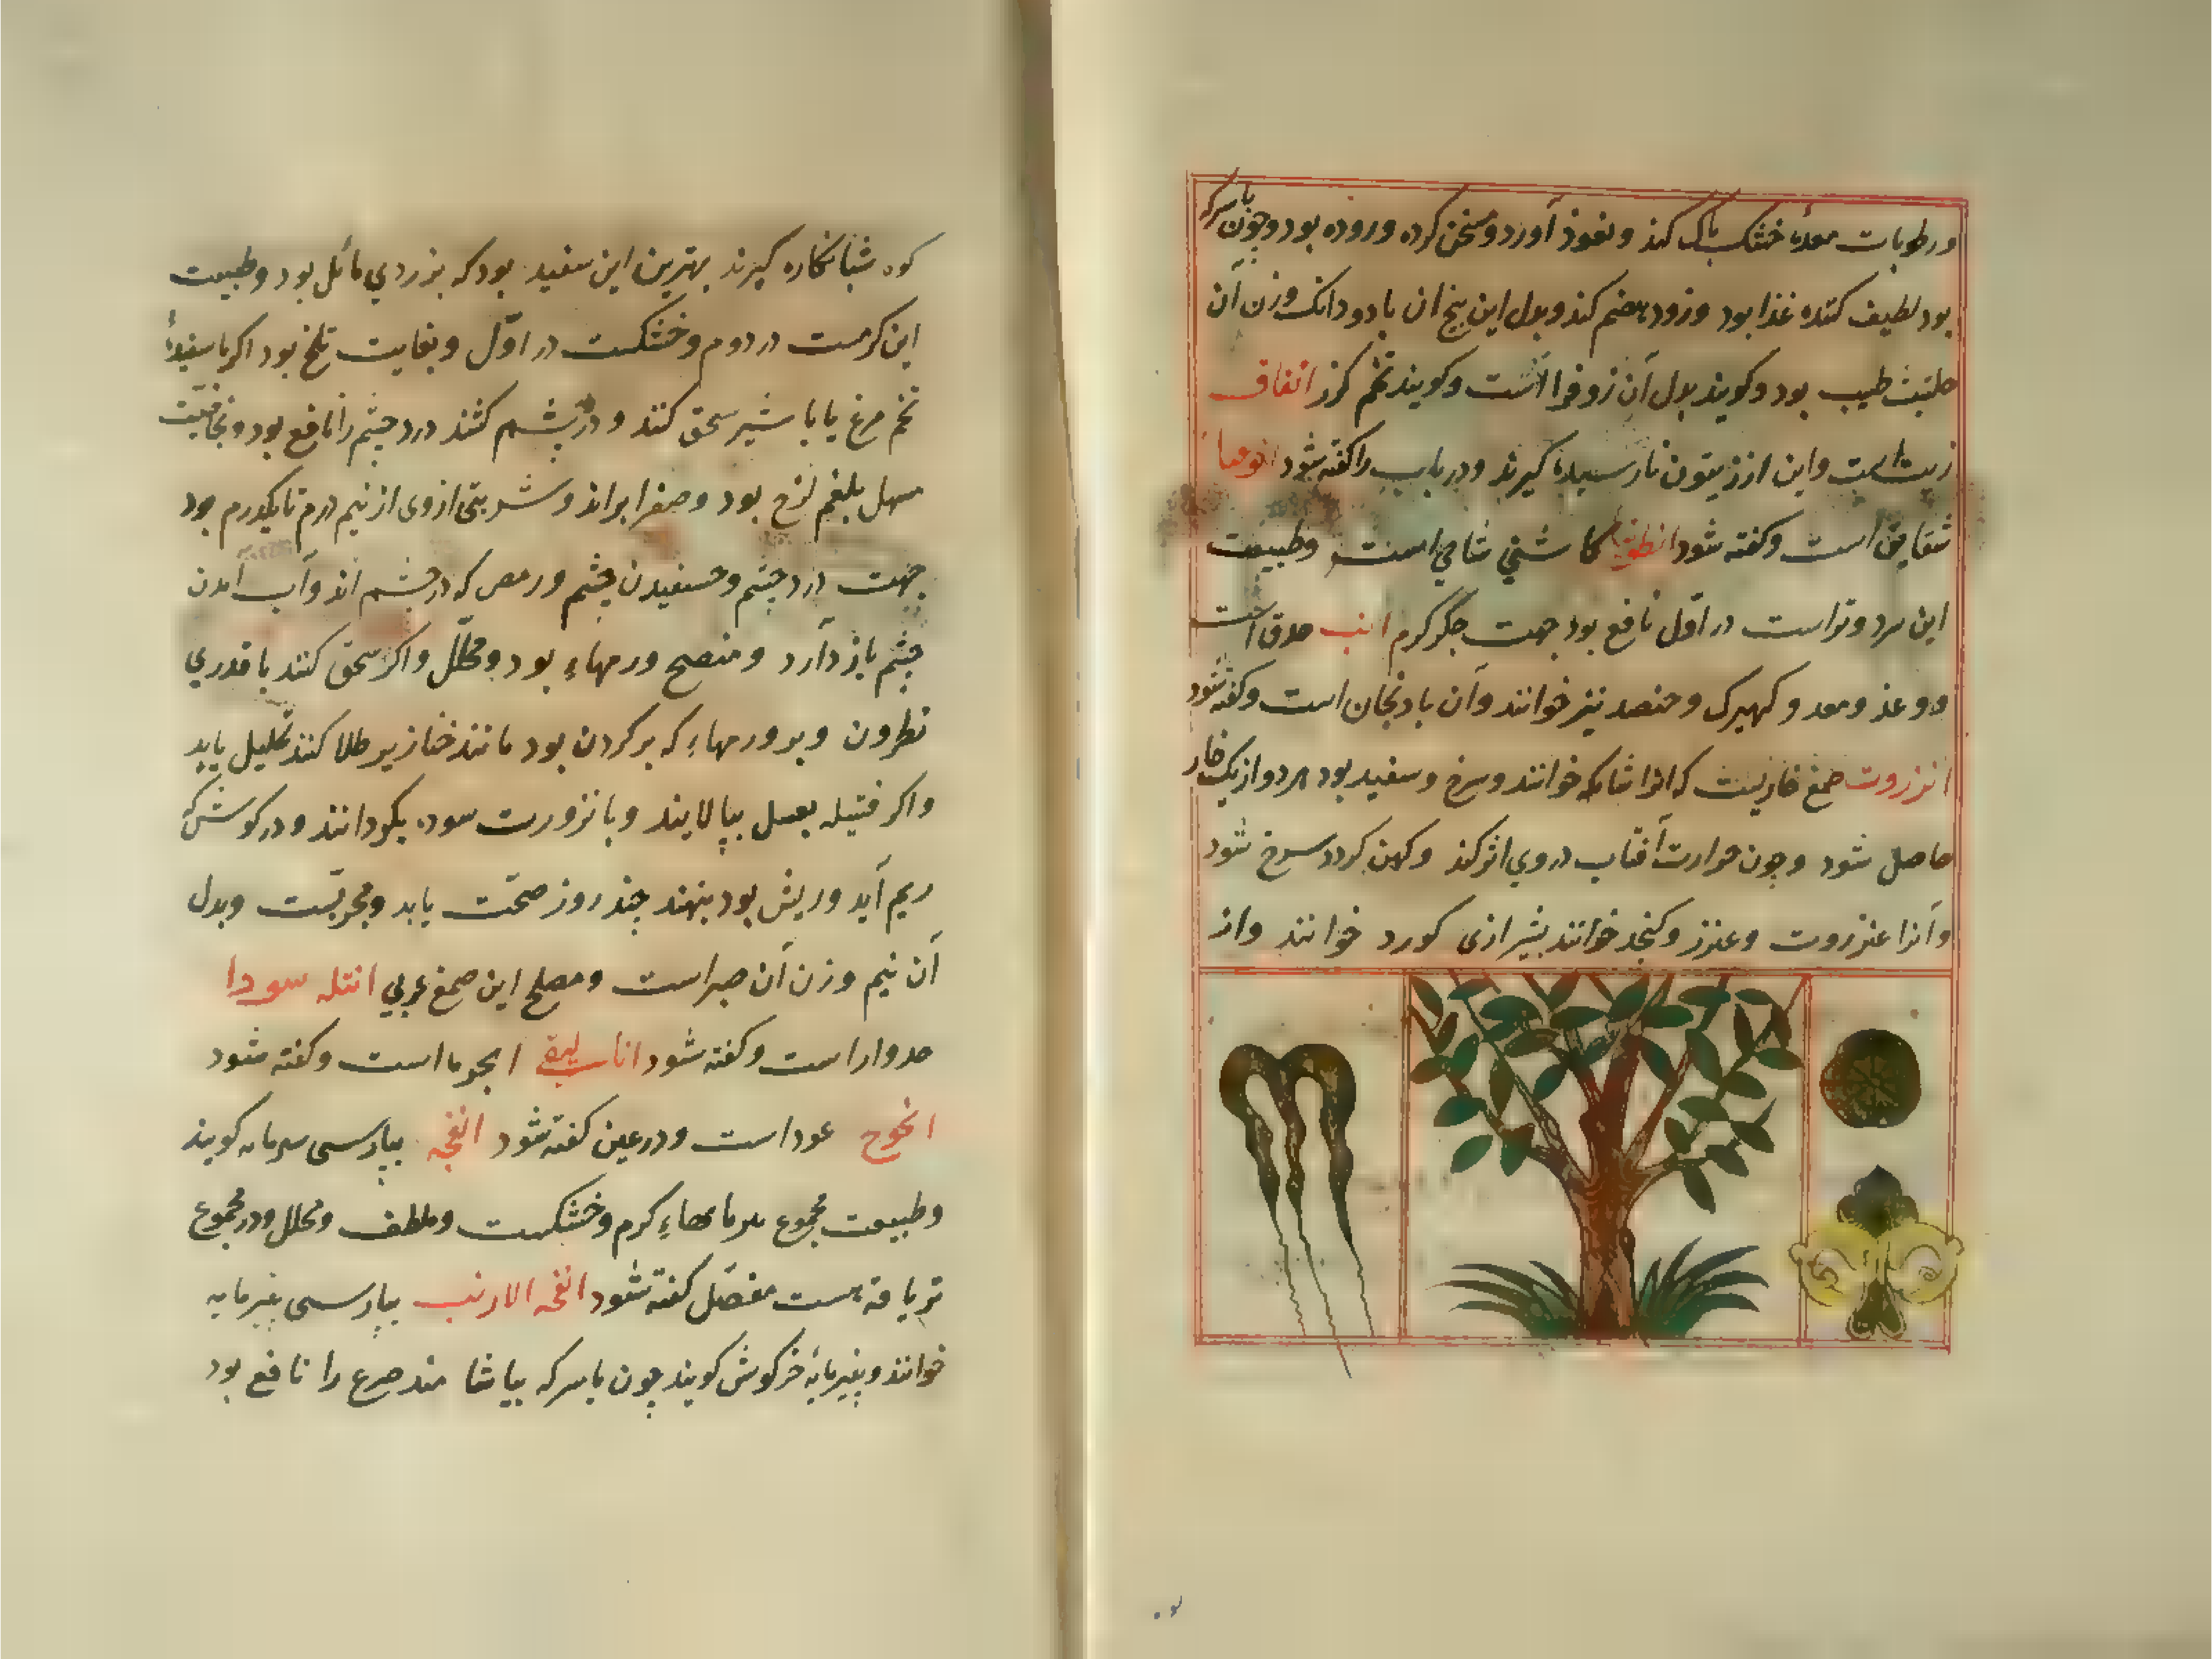 و رطوبات معدۀ خشک پاک کند و نفوذ آورد و مسخن کرده و روده بود و چون با سرکه
بود لطیف کننده غذا بود و زود هضم کند و بدل این بیخ ان با دو دانک وزن آن
حلتیت طیب بود و کویند بدل آن زوفرا است و کویند تخم کزر انفاق
زیت است و این از زیتون نارسیده کیرند و در باب را کفته شود انوما
شقایق است و کفته شود کاشنی شامی است و طبیعت
این سرد و تر است در اول نافع بود جهت جکر کرم انب حدق است
و وغد و معد و کهپرک و حنصد نیز خوانند و آن بادنجان است و کفته شود
انزروت صمغ خاریست که انرا شایکه خوانند و سرخ و سفید بود هر دو از یک خار
حاصل شود و چون حرارت آفتاب در وی اثر کند و کهن کردد سرخ شود
و آنرا عنزروت و عنزر و کنجد خوانند بشیرازی کورد خوانند و از
کوه شبانکاره کیرند بهترین این سفید بود که بزردی مائل بود و طبیعت
این کرمست در دوم و خشکست در اوّل و بغایت تلخ بود اکر با سفیدۀ
تخم مرغ یا با شیر سحق کنند و در چشم کشند درد چشم را نافع بود و بخاصیّت
مسهل بلغم لزج بود و صفرا براند و شربتی از وی از نیم درم تا یکدرم بود
جهت درد چشم و سفیدن چشم و رمص که در چشم اند و آب آمدن
چشم باز دارد و منضج ورمهاء بود و محلّل و اکر سحق کنند با قدری
نطرون و بر ورمهاء که بر کردن بود مانند خنازیر طلا کنند تحلیل یابد
و اکر فتیله بعسل بیالایند و بانزورت سوده بکردانند و در کوش که
ریم آید و ریش بود بنهند چند روز صحّت یابد و مجربّست و بدل
آن نیم وزن آن صبر است و مصلح این صمغ عربی انتله سودا
جدوار است و کفته شود اناسلیقی ابجرما است و کفته شود
انجوج عود است و در عین کفته شود انفحه بپارسی سرمایه کویند
و طبیعت مجموع سرمایهاء کرم و خشکست و ملطف و محلل و در مجموع
تریاقیه هست مفصّل کفته شود انفحه الارنب بپارسی پنیرمایه
خوانند و پنیرمایۀ خرکوش کویند چون با سرکه بیاشامند صرع را نافع بود